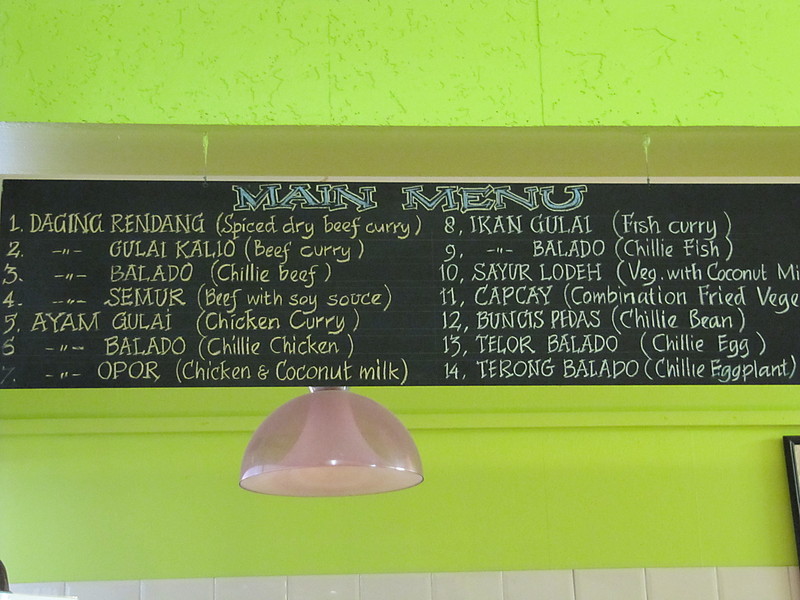 MAIN MENU
1. DAGING RENDANG (Spiced dry beef curry)
2. -"- GULAI KALIO (Beef curry)
3. -"- BALADO (Chillie beef)
4. -"- SEMUR (Beef with soy souce)
5. AYAM GULAI (Chicken Curry)
6 -"- BALADO (Chillie Chicken)
7. -"- OPOR (Chicken & Coconut milk)
8, IKAN GULAI (Fish curry)
9, -"- BALADO (Chillie Fish)
10, SAYUR LODEH (Veg. with Coconut Mi
11, CAPCAY (Combination Fried Vege
12, BUNCIS PEDAS (Chillie Bean)
13, TELOR BALADO (Chillie Egg)
14, TERONG BALADO (Chillie Eggplant)